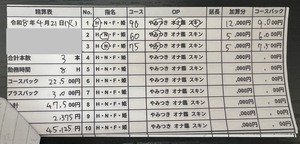 精算表 No. 指名 コース OP 延長 加算分 コースパック
令和8年4月21日(火) 1 H・N・F・姫 90 やみつき オナ鑑 スキン 12,000円 9,000円
2 H・N・F・姫 60 やみつき オナ鑑 スキン 5,000円 6,000円
3 H・N・F・姫 75 やみつき オナ鑑 スキン 5,000円 7,500円
合計本数 3 本 4 H・N・F・姫 やみつき オナ鑑 スキン ,000円 ,000円
勤務時間 8 H 5 H・N・F・姫 やみつき オナ鑑 スキン ,000円 ,000円
コースパック 22,500 円 6 H・N・F・姫 やみつき オナ鑑 スキン ,000円 ,000円
プラスバック 円 7 H・N・F・姫 やみつき オナ鑑 スキン ,000円 ,000円
合計 47,500 円 8 H・N・F・姫 やみつき オナ鑑 スキン ,000円 ,000円
2,375 円 9 H・N・F・姫 やみつき オナ鑑 スキン ,000円 ,000円
45,125 円 10 H・N・F・姫 やみつき オナ鑑 スキン ,000円 ,000円